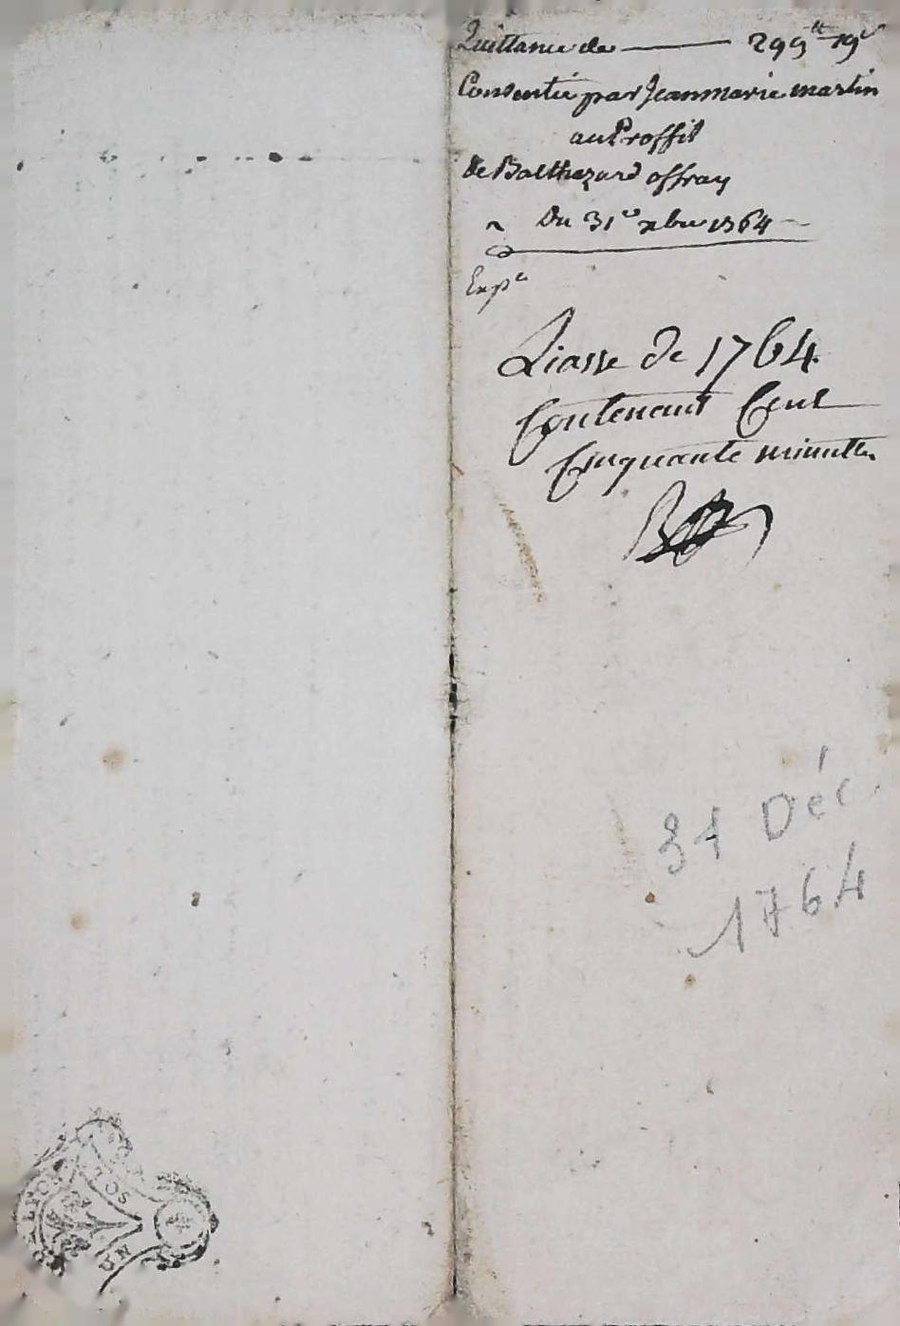 Quittance de — 299 ₶ 19 s
Consentie par Jean marie martin
au Proffit
de Balthezard offray
Du 31e xbre 1764
Expe
Liasse de 1764.
Contenant Cent
Cinquante minuttes
31 Déc.
1764
SOL
UN